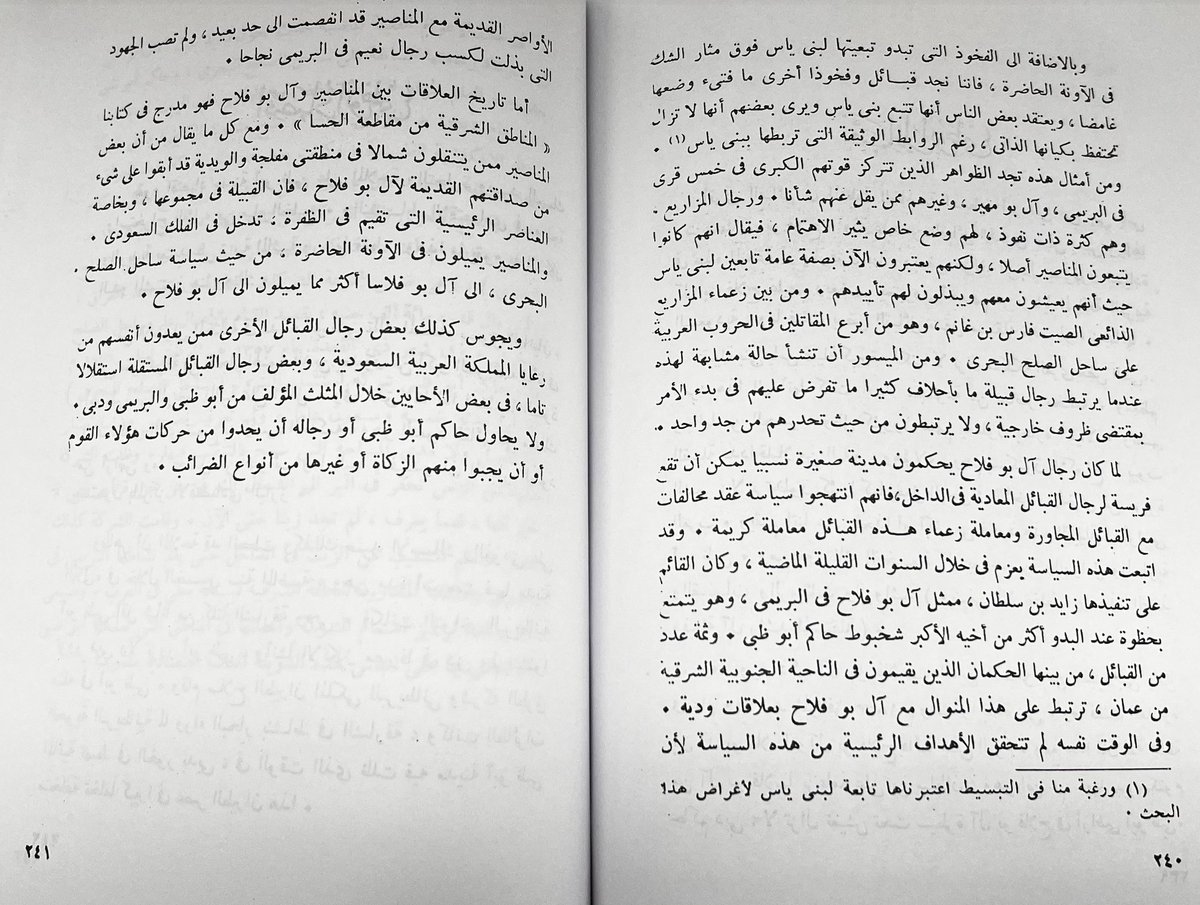 وبالاضافة الى الفخوذ التى تبدو تبعيتها لبنى ياس فوق مثار الشك
فى الآونة الحاضرة ، فاننا نجد قبائل وفخوذا أخرى ما فتىء وضعها
غامضا ، ويعتقد بعض الناس أنها تتبع بنى ياس ويرى بعضهم أنها لا تزال
تحتفظ بكيانها الذاتى ، رغم الروابط الوثيقة التى تربطها ببنى ياس(١) ٠
ومن أمثال هذه تجد الظواهر الذين تتركز قوتهم الكبرى فى خمس قرى
فى البريمى ، وآل بو مهير ، وغيرهم ممن يقل عنهم شأنا ٠ ورجال المزاريع ٠
وهم كثرة ذات نفوذ ، لهم وضع خاص يثير الاهتام ، فيقال انهم كانوا
يتبعون المناصير أصلا ، ولكنهم يعتبرون الآن بصفة عامة تابعين لبنى ياس
حيث أنهم يعيشون معهم ويبذلون لهم تأييدهم ٠ ومن بين زعماء المزاريع
الذائعى الصيت فارس بن غانم ، وهو من أبرع المقاتلين فى الحروب العربية
على ساحل الصلح البحرى ٠ ومن الميسور أن تنشأ حالة مشابهة لهذه
عندما يرتبط رجال قبيلة ما بأحلاف كثيرا ما تفرض عليهم فى بدء الأمر
بمقتضى ظروف خارجية ، ولا يرتبطون من حيث تحدرهم من جد واحد ٠
لما كان رجال آل بو فلاح يحكمون مدينة صغيرة نسبيا يمكن أن تقع
فريسة لرجال القبائل المعادية فى الداخل،فانهم انتهجوا سياسة عقد محالفات
مع القبائل المجاورة ومعاملة زعماء هذه القبائل معاملة كريمة ٠ وقد
اتبعت هذه السياسة بعزم فى خلال السنوات القليلة الماضية ، وكان القائم
على تنفيذها زايد بن سلطان ، ممثل آل بو فلاح فى البريمى ، وهو يتمتع
بحظوة عند البدو أكثر من أخيه الأكبر شخبوط حاكم أبو ظبى ٠ وثمة عدد
من القبائل ، من بينها الحكمان الذين يقيمون فى الناحية الجنوبية الشرقية
من عمان ، ترتبط على هذا المنوال مع آل بو فلاح بعلاقات ودية ٠
وفى الوقت نفسه لم تتحقق الأهداف الرئيسية من هذه السياسة لأن
(١) ورغبة منا فى التبسيط اعتبرناها تابعة لبنى ياس لأغراض هذا
البحث ٠
٢٤٠
الأواصر القديمة مع المناصير قد انفصمت الى حد بعيد ، ولم تصب الجهود
التى بذلت لكسب رجال نعيم فى البريمى نجاحا ٠
أما تاريخ العلاقات بين المناصير وآل بو فلاح فهو مدرج فى كتابنا
« المناطق الشرقية من مقاطعة الحسا » ٠ ومع كل ما يقال من أن بعض
المناصير ممن يتنقلون شمالا فى منطقتى مفلجة والويدية قد أبقوا على شىء
من صداقتهم القديمة لآل بو فلاح ، فان القبيلة فى مجموعها ، وبخاصة
العناصر الرئيسية التى تقيم فى الظفرة ، تدخل فى الفلك السعودى ٠
والمناصير يميلون فى الآونة الحاضرة ، من حيث سياسة ساحل الصلح
البحرى ، الى آل بو فلاسا أكثر مما يميلون الى آل بو فلاح ٠
ويجوس كذلك بعض رجال القبائل الأخرى ممن يعدون أنفسهم من
رعايا المملكة العربية السعودية ، وبعض رجال القبائل المستقلة استقلالا
تاما ، فى بعض الأحايين خلال المثلث المؤلف من أبو ظبى والبريمى ودبى ٠
ولا يحاول حاكم أبو ظبى أو رجاله أن يحدوا من حركات هؤلاء القوم
أو أن يجبوا منهم الزكاة أو غيرها من أنواع الضرائب ٠
٢٤١